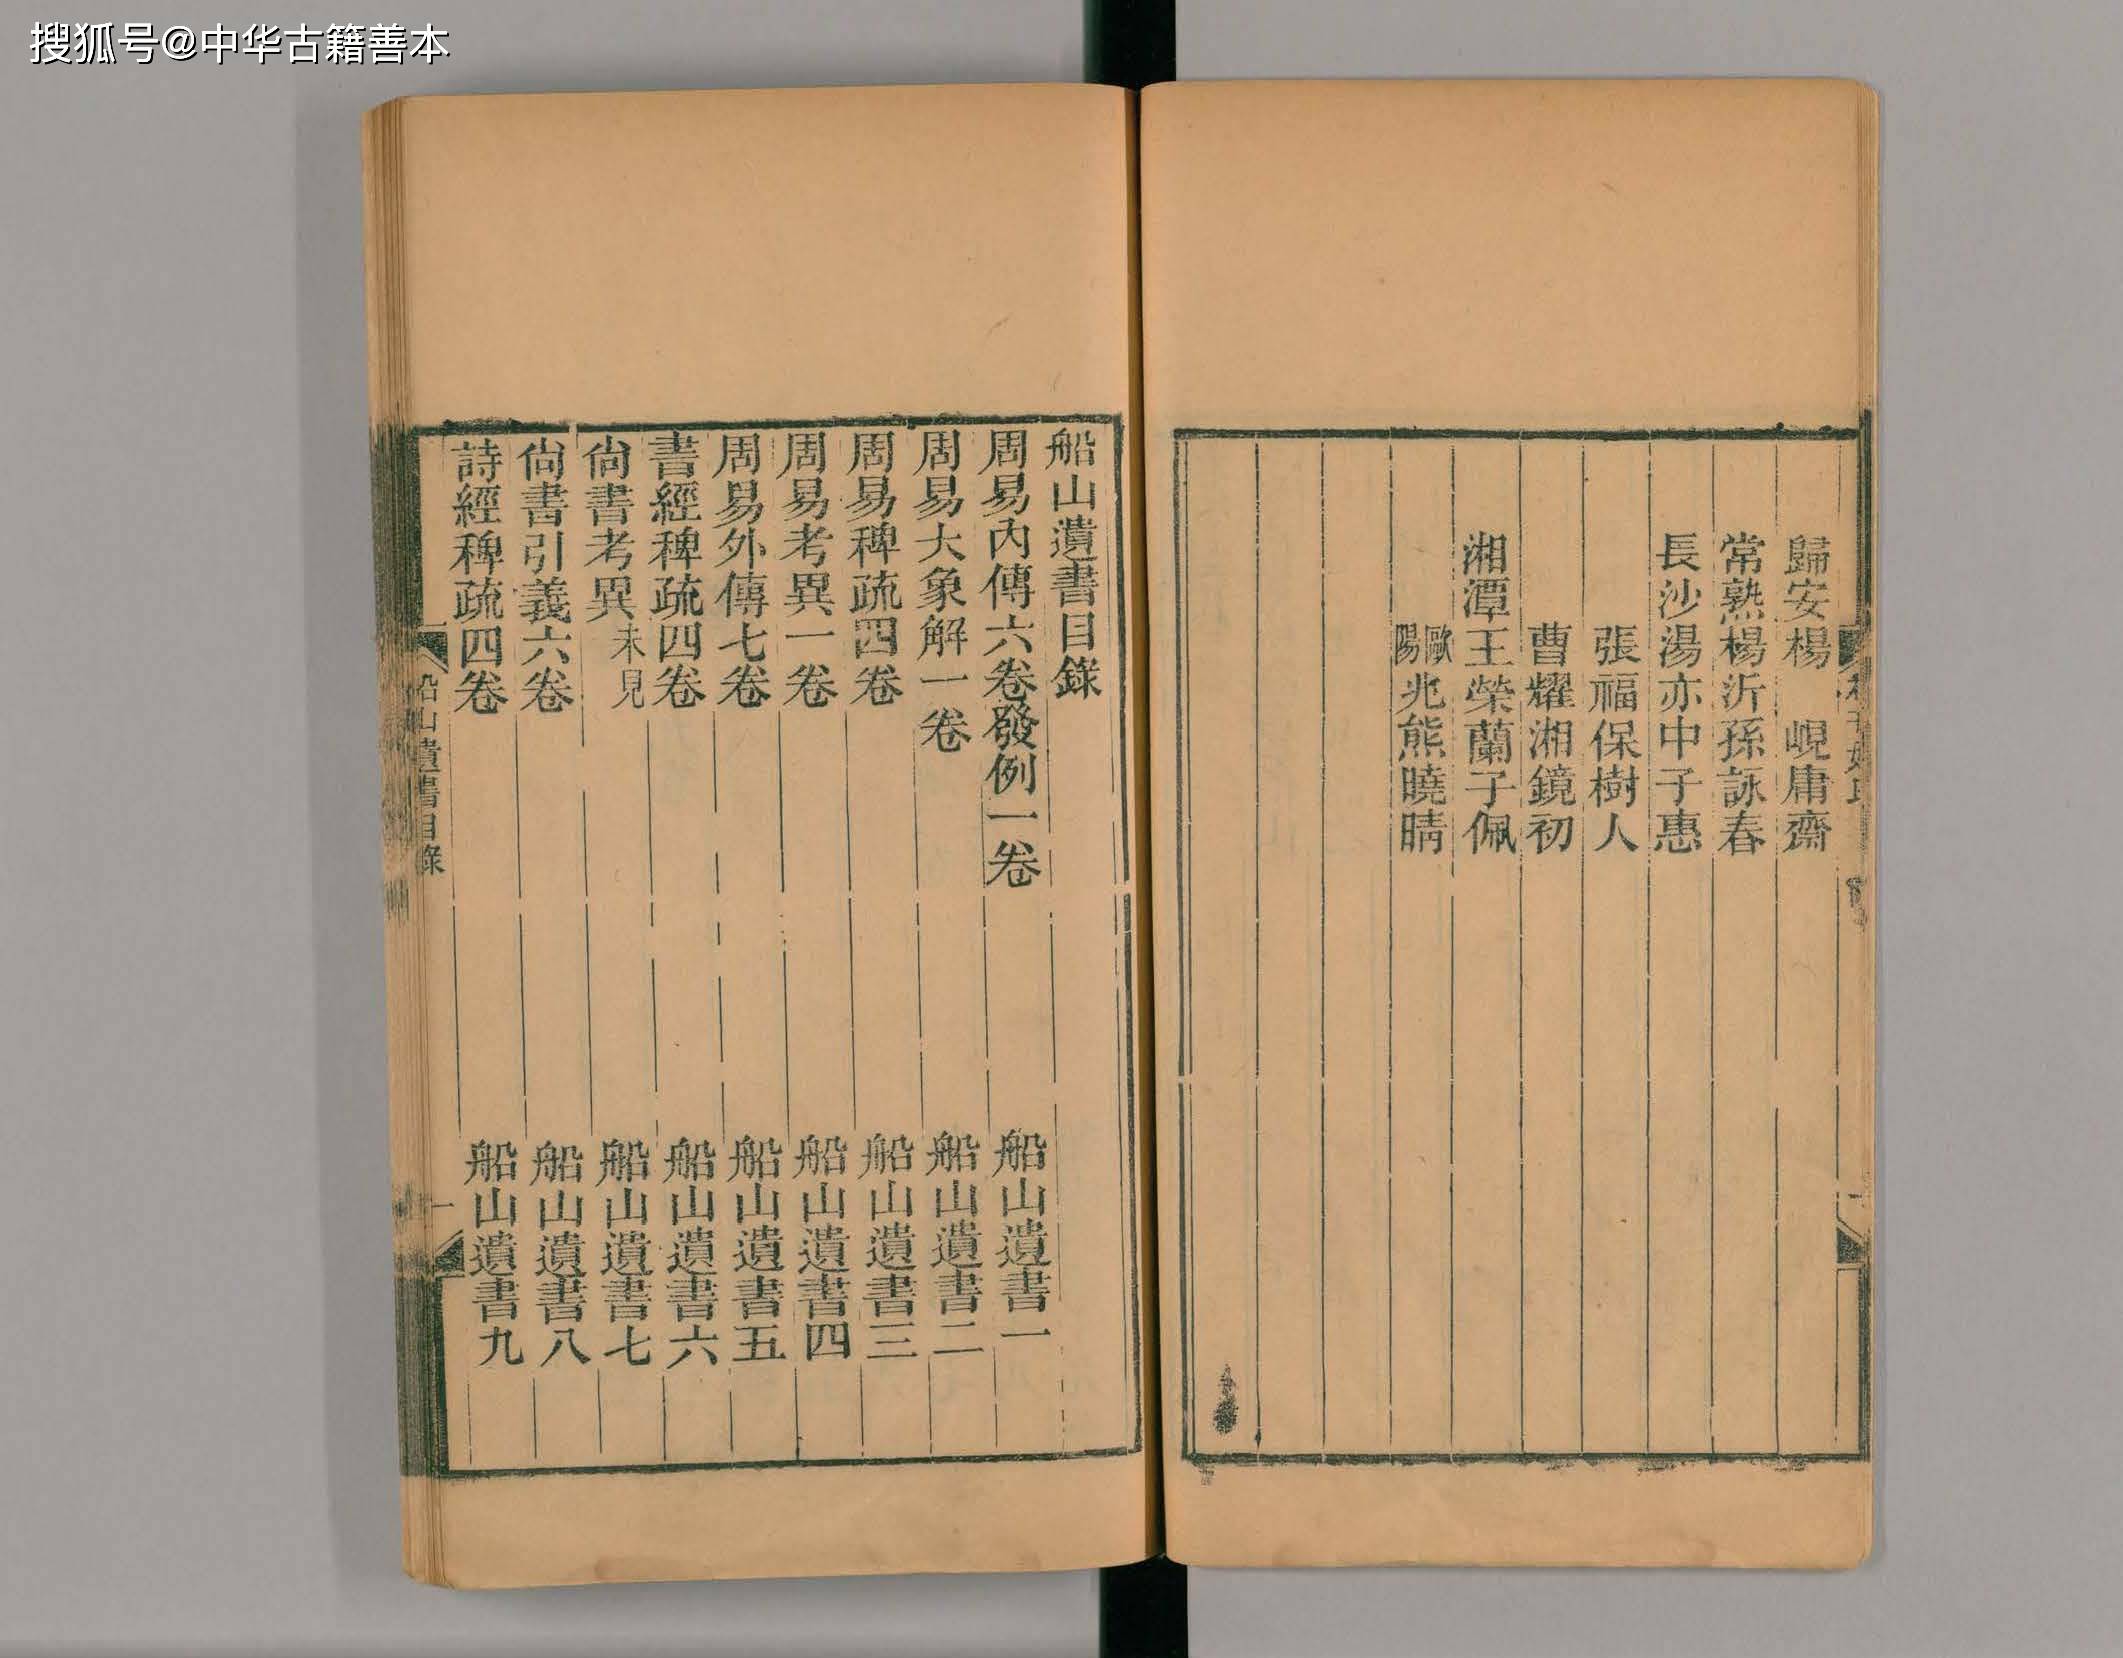 搜狐号@中华古籍善本
歸安楊　峴庸齋
常熟楊沂孫詠春
長沙湯亦中子惠
張福保樹人
曹耀湘鏡初
湘潭王榮蘭子佩
歐陽兆熊曉晴
船山遺書目錄
周易內傳六卷發例一卷　船山遺書一
周易大象解一卷　船山遺書二
周易稗疏四卷　船山遺書三
周易考異一卷　船山遺書四
周易外傳七卷　船山遺書五
書經稗疏四卷　船山遺書六
尙書考異未見　船山遺書七
尙書引義六卷　船山遺書八
詩經稗疏四卷　船山遺書九
船山遺書目錄
一